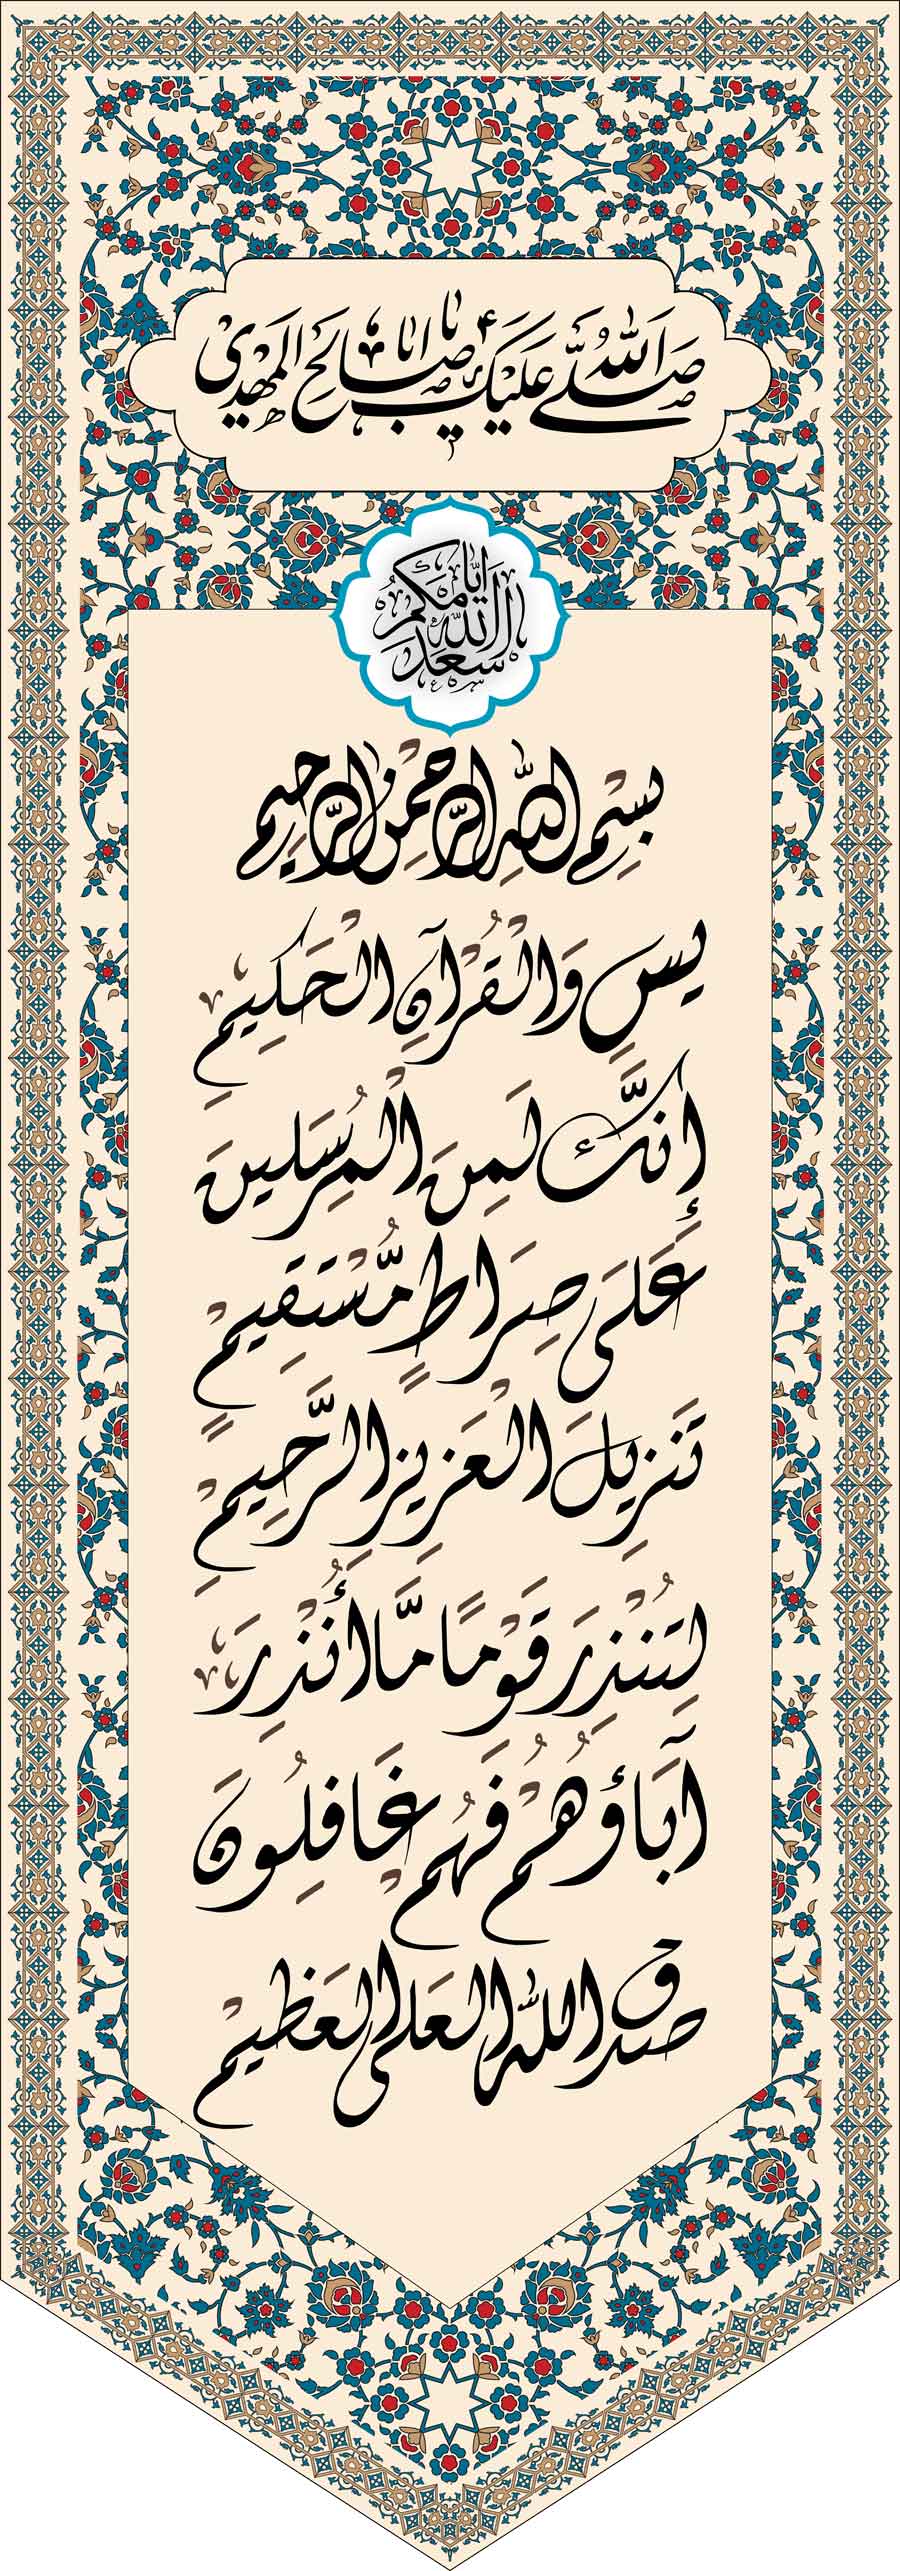 صَلَّی اللهُ عَلَیْکَ یا ابا صالِحَ الْمَهْدی
اسعد الله ایامکم
بِسْمِ اللهِ الرَّحْمنِ الرَّحِیمِ
یس وَالْقُرْآنِ الْحَكِیمِ
إِنَّكَ لَمِنَ الْمُرْسَلِینَ
عَلَى صِرَاطٍ مُّسْتَقِیمٍ
تَنزِیلَ الْعَزِیزِ الرَّحِیمِ
لِتُنْذِرَ قَوْمًا مَّا أُنْذِرَ
آبَاؤُهُمْ فَهُمْ غَافِلُونَ
صدق الله العَلی العَظیم